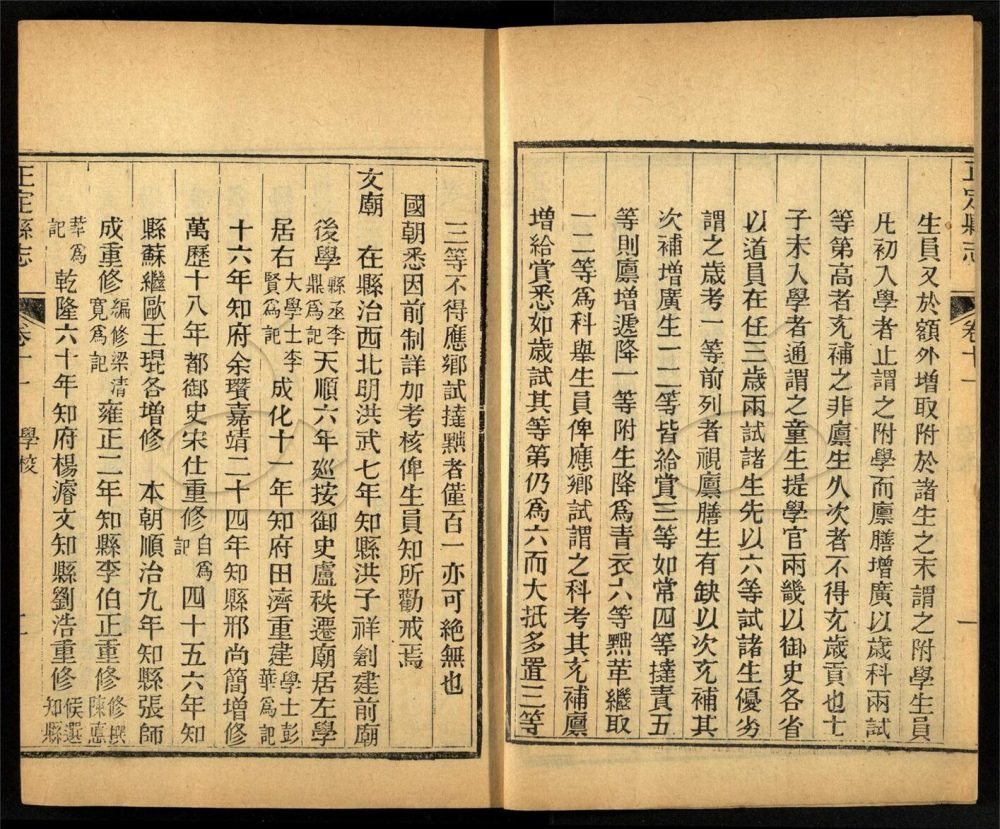 正定縣志 卷十一 一
生員又於額外增取附於諸生之末謂之附學生員
凡初入學者止謂之附學而廩膳增廣以歲科兩試
等第高者充補之非廩生久次者不得充歲貢也士
子未入學者通謂之童生提學官兩畿以御史各省
以道員在任三歲兩試諸生先以六等試諸生優劣
謂之歲考一等前列者視廩膳生有缺以次充補其
次補增廣生一二等皆給賞三等如常四等撻責五
等則廩增遞降一等附生降爲青衣六等黜革繼取
一二等爲科舉生員俾應鄉試謂之科考其充補廩
增給賞悉如歲試其等第仍爲六而大抵多置三等
三等不得應鄉試撻黜者僅百一亦可絕無也
國朝悉因前制詳加考核俾生員知所勸戒焉
文廟 在縣治西北明洪武七年知縣洪子祥創建前廟
後學縣丞李鼎爲記天順六年廵按御史盧秩遷廟居左學
居右大學士李賢爲記成化十一年知府田濟重建學士彭華爲記
十六年知府余瓚嘉靖二十四年知縣邢尚簡增修
萬歷十八年都御史宋仕重修自爲記四十五六年知
縣蘇繼歐王琨各增修 本朝順治九年知縣張師
成重修編修梁清寬爲記雍正二年知縣李伯正重修修撰陳悳
華爲記乾隆六十年知府楊濬文知縣劉浩重修候選知縣
正定縣志 卷十一 學校 二